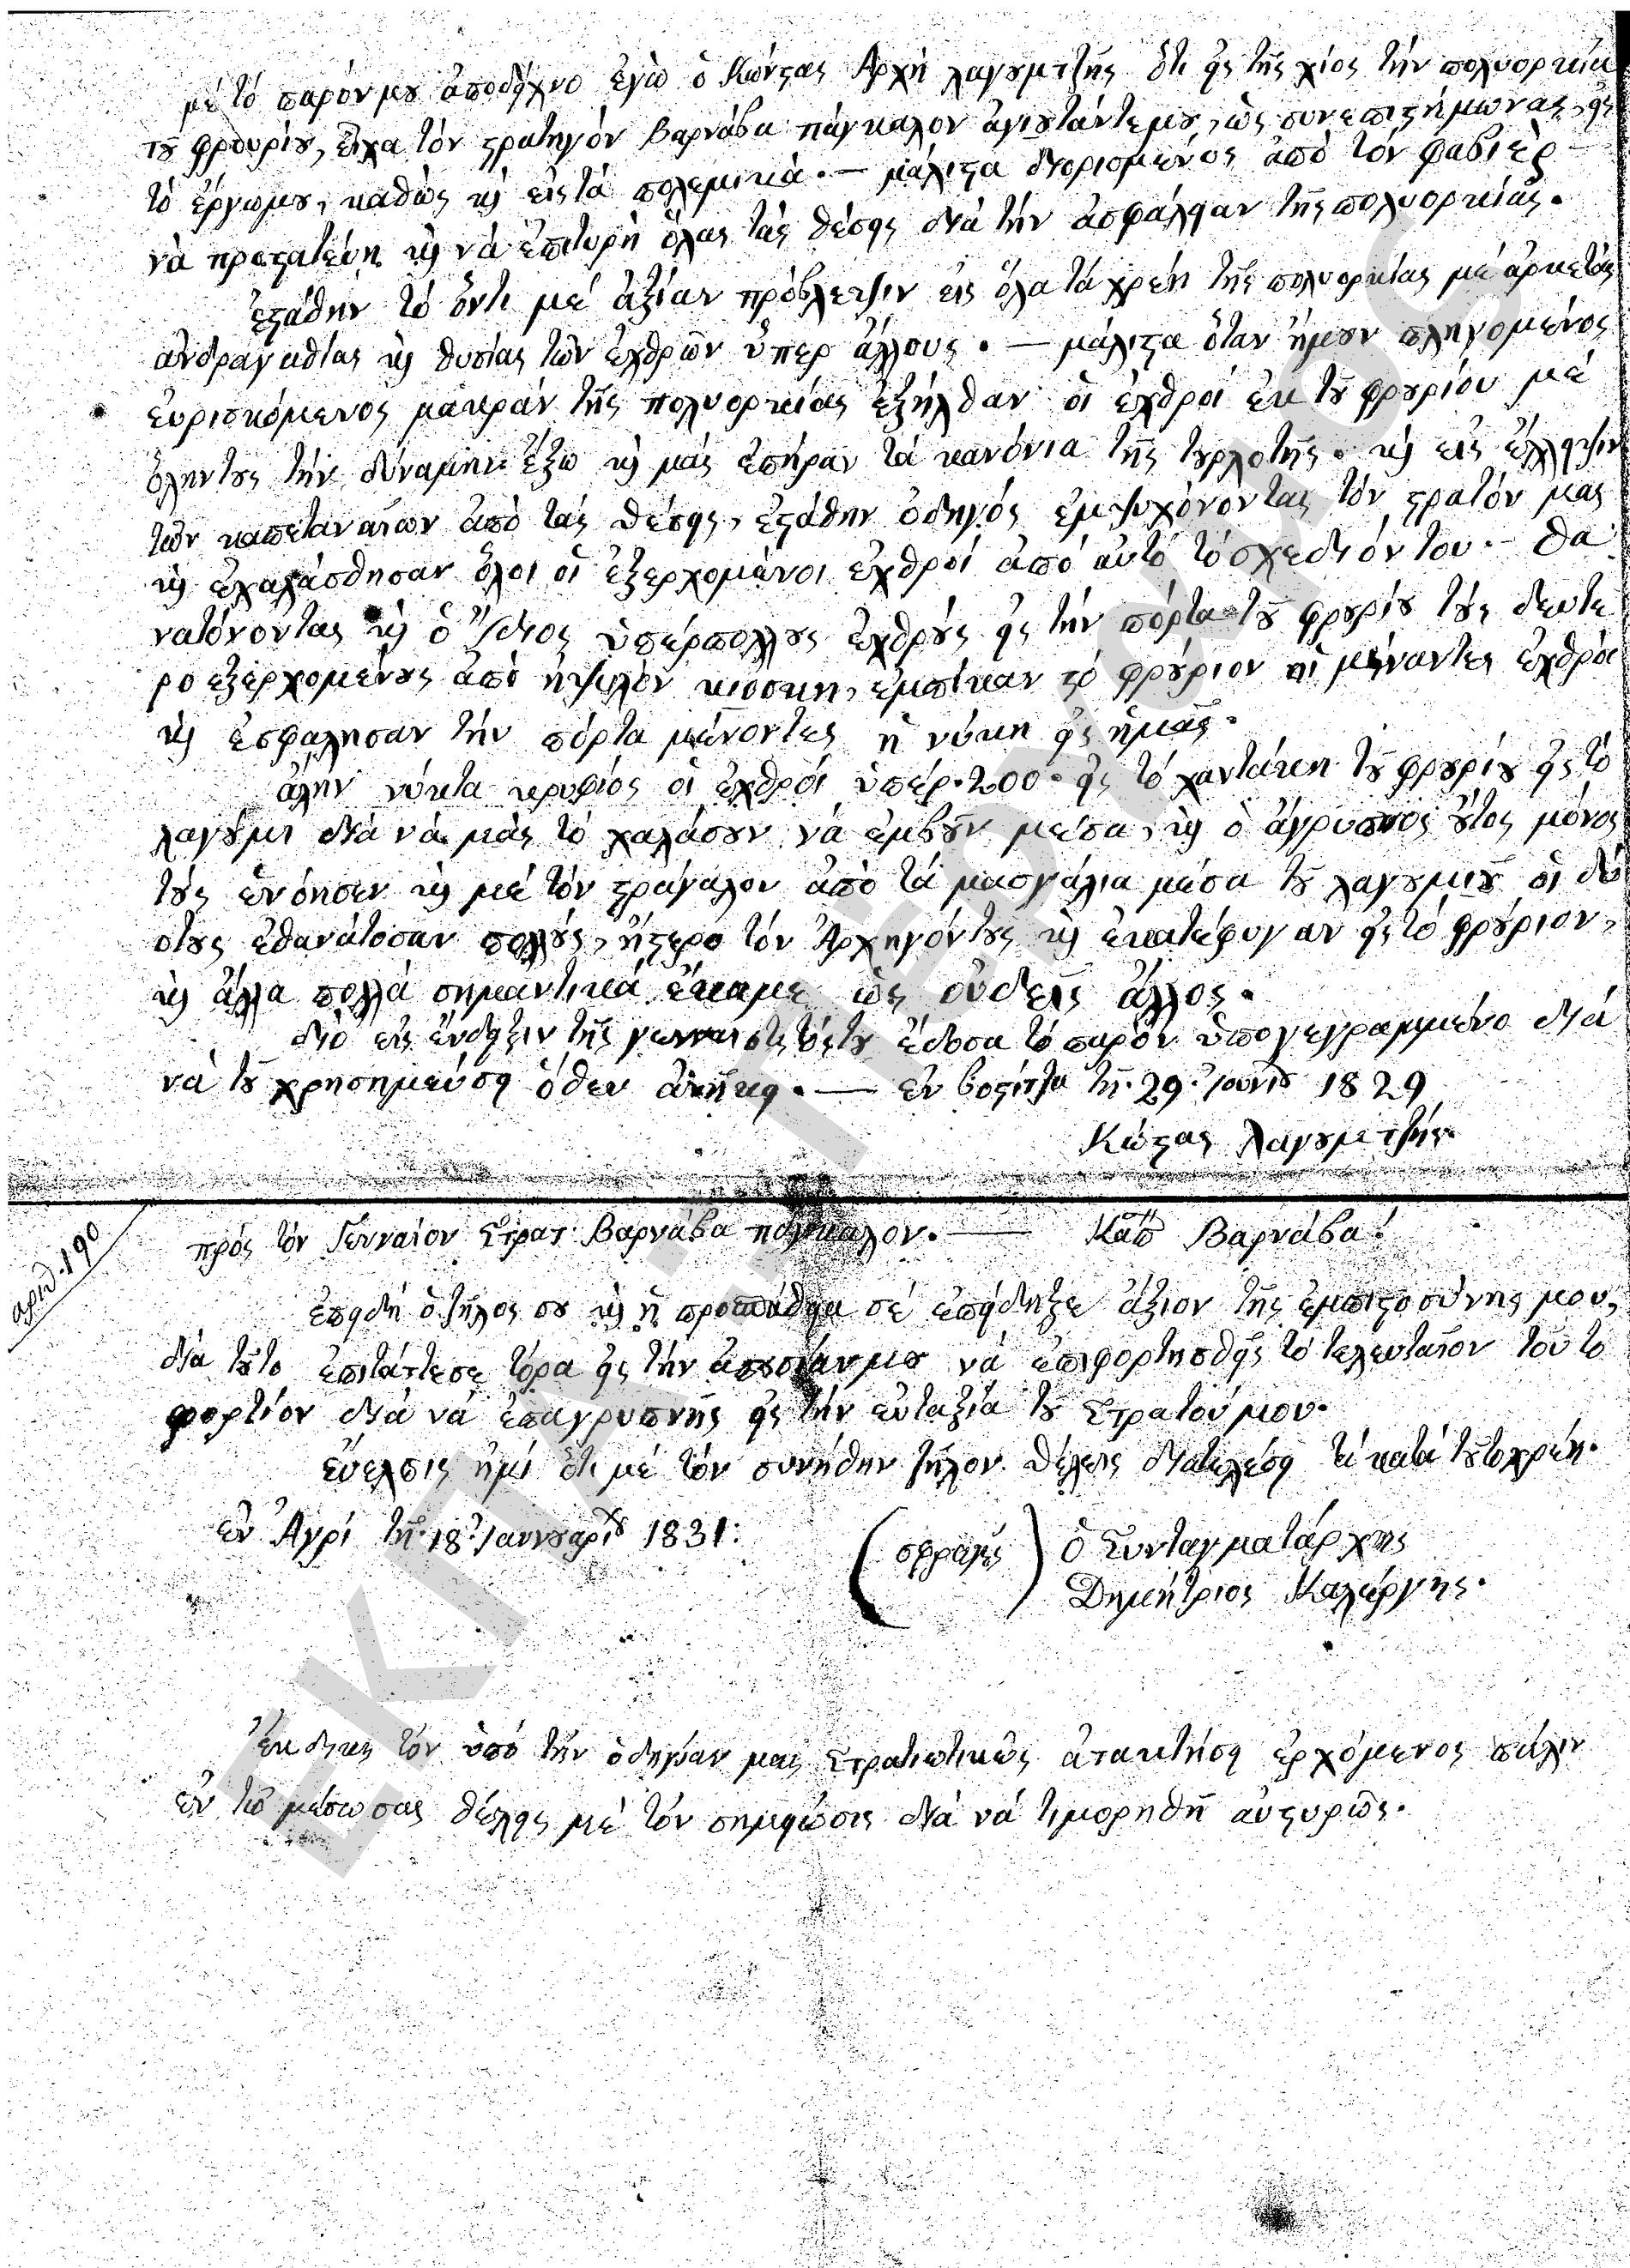 μέ τό παρόν μου ἀποδείχνο ἐγὼ ὁ Κώνστας Ἀρχή λαγουμτζῆς ὅτι εἰς τῆς χίος τήν πολυορκία
τοῦ φρουρίου, εἶχα τόν στρατηγόν Βαρνάβα πάγκαλον ἀγιουτάντεμου, ὡς συνεπιστήμωνας, εἰς
τό ἔργωμου, καθὼς καὶ εἰς τά πολεμικά. — μάλιστα διορισμένος ἀπὸ τόν φαβιὲρ
νὰ προστατεύη καὶ νὰ ἐπιτυρῆ ὅλας τὰς θέσεις διά τήν ἀσφάλειαν τῆς πολυορκίας.
ἐστάθην τό ὄντι μέ ἀξίαν πρόβλεψιν εἰς ὅλα τά χρέη τῆς πολυορκίας μέ ἀρκετάς
ἀνδραγαθίας καὶ θυσίας τῶν ἐχθρῶν ὕπερ ἄλλους. — μάλιστα ὅταν ἤμουν πληγομένος
εὑρισκόμενος μακράν τῆς πολυορκίας ἐξῆλθαν οἱ ἐχθροί ἐκ τοῦ φρουρίου μέ
ὅληντους τήν δύναμην ἔξω καὶ μάς ἐπῆραν τά κανόνια τῆς τουρλοτῆς. καὶ εἰς ἔλλειψιν
τῶν καπεταναίων ἀπὸ τάς θέσεις, ἐστάθην ὁδηγός ἐμψυχόνοντας τόν στρατόν μας
καὶ ἐχαλάσθησαν ὅλοι οἱ ἐξερχομένοι ἐχθροί ἀπό αὐτό τό σχεδιόν του. — θα
νατόνοντας καὶ ὁ ἴδιος ὑπέρπολλους ἐχθρούς εἰς τήν πόρτα τοῦ φρουρίου τούς δευτε
ρο ἐξερχομένους ἀπὸ ἡψιλόν κιόσκη, ἐμπίκαν τό φρούριον οἱ μείναντες ἐχθροί
καὶ ἐσφαλησαν τήν πόρτα μένοντες ἡ νύκη εἰς ἡμᾶς.
ἄλην νύκτα κρυφίος οἱ ἐχθροί ὑπέρ. 200. εἰς τό χαντάκη τοῦ φρουρίου εἰς τό
λαγούμι διά νά μᾶς τό χαλάσουν νά ἐμβοῦν μέσα, καὶ ὁ ἄγρυπνος οὗτος μόνος
τούς ἐνόησεν καὶ μέ τόν στράγαλον ἀπὸ τά μασγάλια μέσα τοῦ λαγουμιοῦ οἱ δύ
οτους ἐθανάτοσαν πολλούς, ἥστερο τόν Ἀρχηγόντους καὶ ἐκατέφυγαν εἰς τό φρούριον,
καὶ ἄλλα πολλά σημαντικά ἔκαμε ὡς οὐδείς ἄλλος.
διό εἰς ἔνδειξιν τῆς γενναιότητόςτου ἔδοσα τό παρόν ὑπογεγραμμένο διά
νά τοῦ χρησημεύση ὅθεν ἀνήκει. — ἐν βοστίτζα τῇ. 29. Ἰουνίου 1829
Κώστας λαγουμιτζής.
αριθ. 190
πρός τόν Γενναίον Στρατ: Βαρνάβα πάγκαλον. — Καπ Βαρνάβα!
ἐπειδή ὁ ζῆλος σου καὶ ἡ προσπάθεια σέ ἐπέδηξε ἄξιον τῆς ἐμπιστοσύνης μου,
διά τοῦτο ἐπιτάττεσε τόρα εἰς τήν ἀπουσίαν μου νά ἐπιφορτησθῇς τό τελευταῖον τουτο
φορτίον διά νά ἐπαγρυπνῇς εἰς τήν εὐταξία τοῦ Στρατού μου.
εὔελπις ἠμί ὅτι μέ τόν συνήθην ζῆλον θέλεις διατελέση τά κατά τοῦτο χρέη.
ἐν Ἄγρί τῇ. 18 Ἰαννουαρίου 1831:
(σφραγίς) ὁ Συνταγματάρχης
Δημήτριος Καλέργης.
Ἐκ τόν ὑπό τήν ὁδηγίαν μας Στρατιωτικῶς ἀτακτήση ἐρχόμενος πάλιν
ἐν τῶ μέσω σας θέλεις μέ τόν σημειώσις διά νά τιμορηθῇ αὐστυρῶς.
ΕΚΠΑ-ΙΠΕΡΓΑΜΟΣ